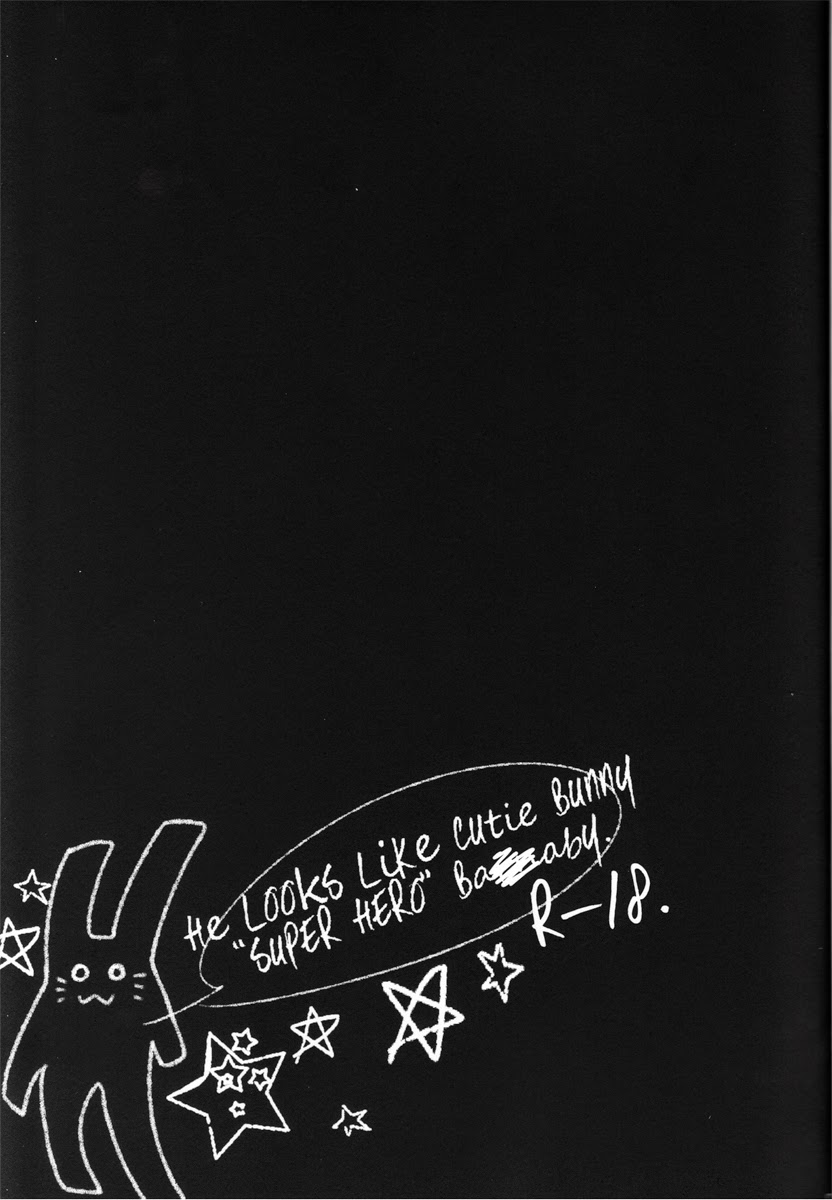 He Looks Like cutie Bunny
"SUPER HERO" Ba aby.
R-18.